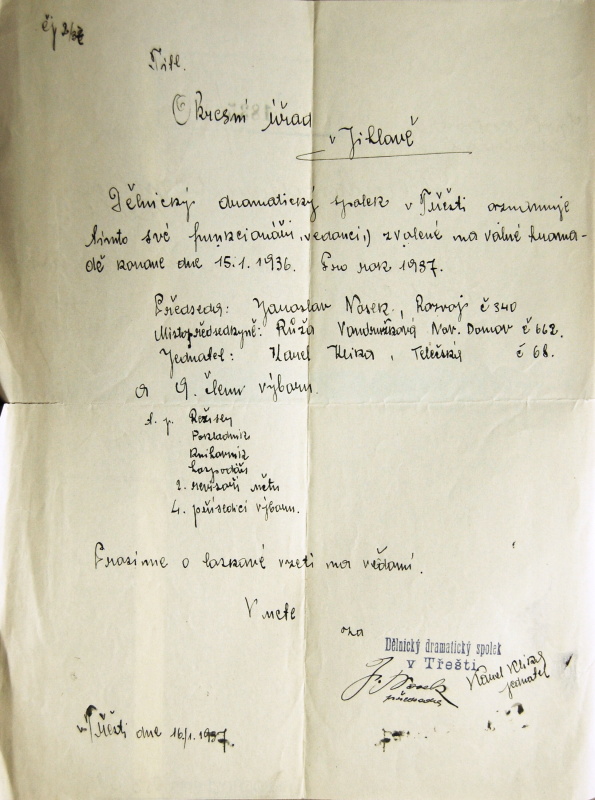 čj 2/37
Titl.
Okresní úřad
v Jihlavě
Dělnický dramatický spolek v Třešti oznamuje
tímto své funkcionáři, zvolené na valné hroma-
dě konané dne 15.1.1936. Pro rok 1937.
Předseda: Jaroslav Nosek, Rozvoj č 340
Místopředsedkyně: Růža Vondrušková Nov. Domov č 662.
Jednatel: Karel Klika, Telečská č 68.
a 9. členu výboru.
t. j. Režisey
Pokladník
Knihovník
hospodář
2. revisoři účtu
4. přísedící výboru.
Prosíme o laskavé vzetí na vědomí.
V úctě
za
Dělnický dramatický spolek
v Třešti
J. Nosek Karel Klika
předseda jednatel
v Třešti dne 16/1. 1937